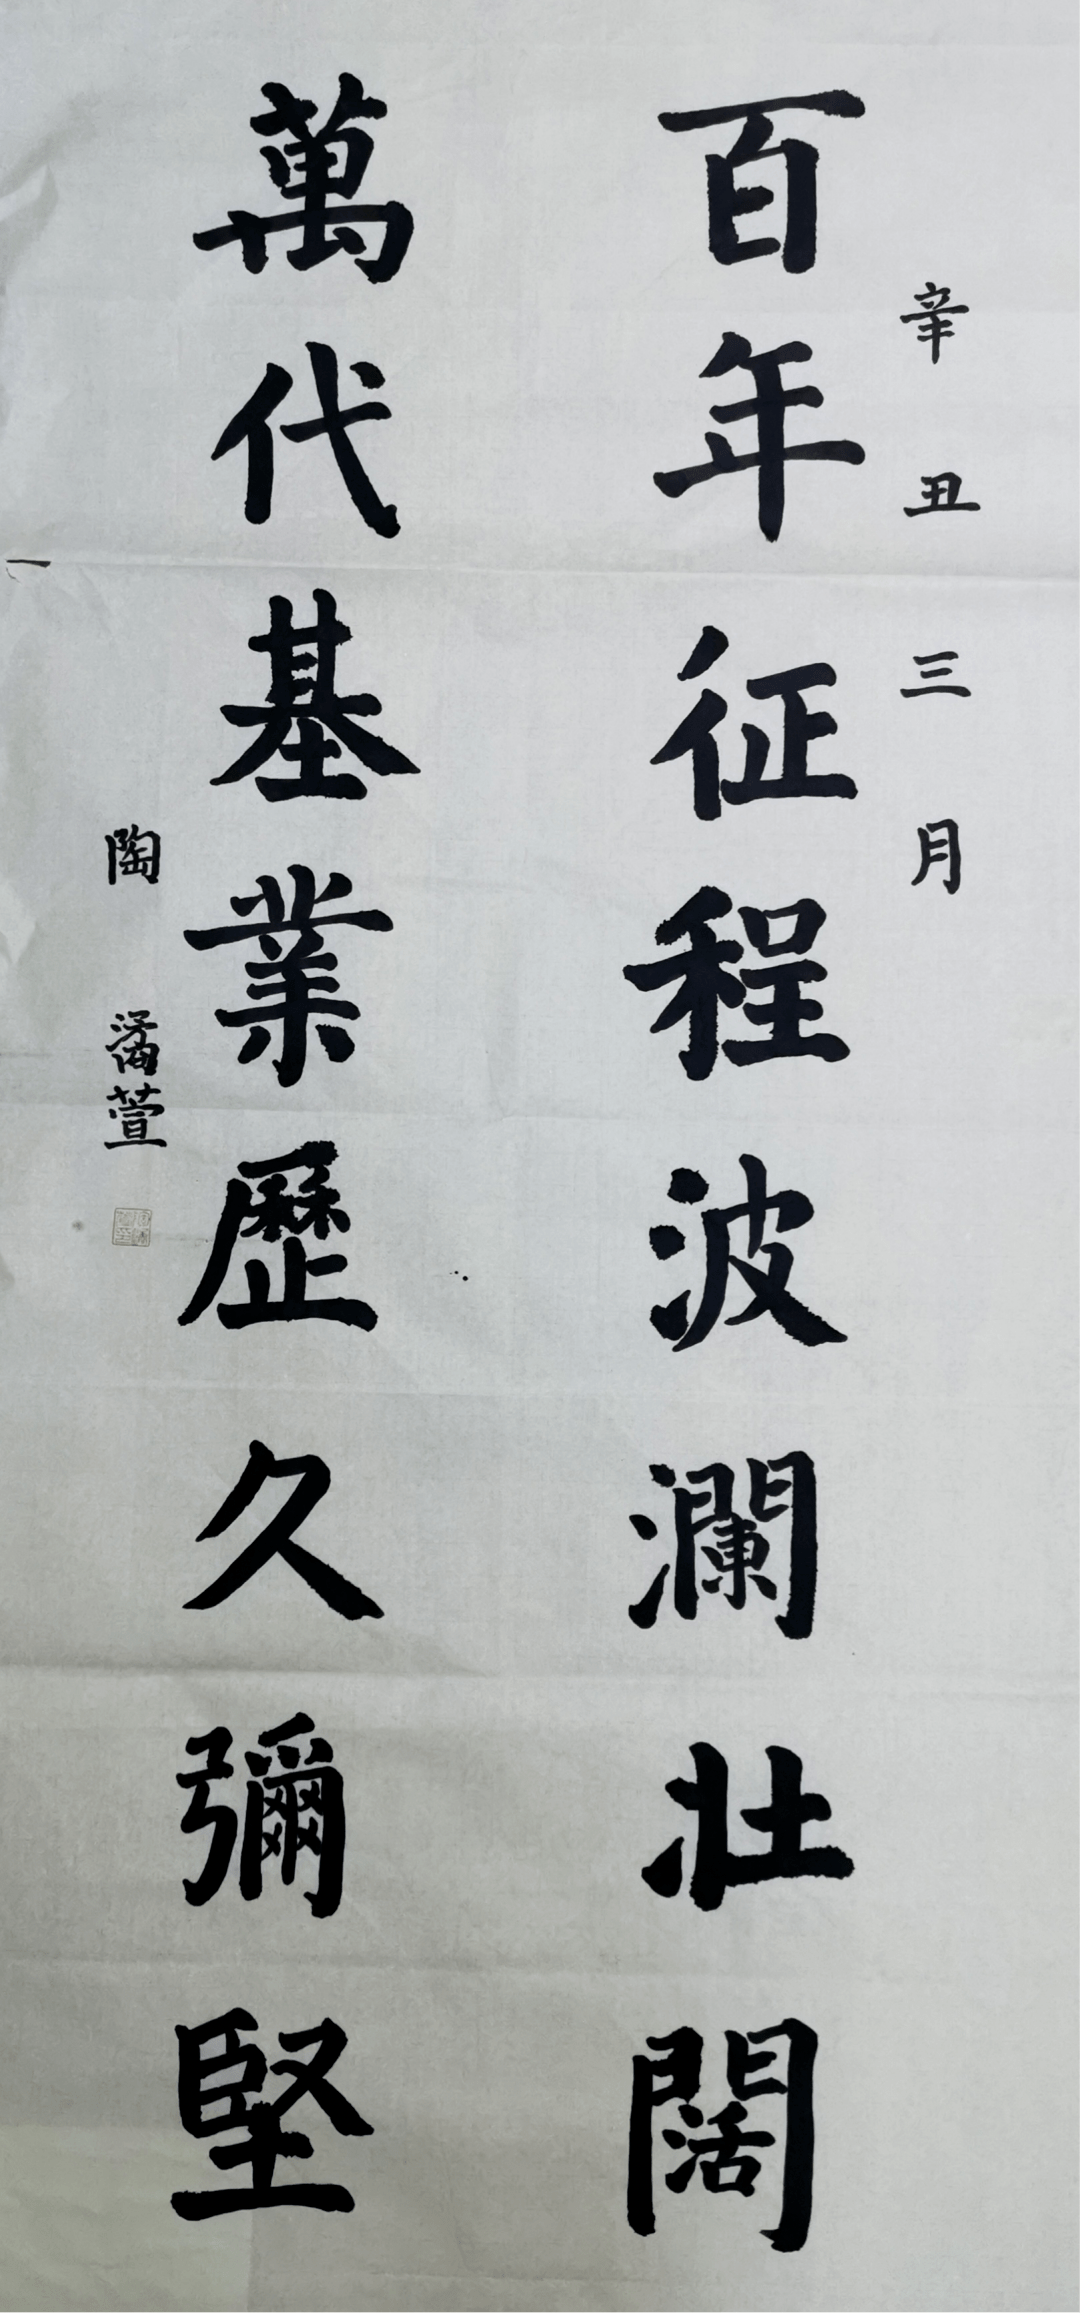 辛丑三月
百年征程波瀾壯闊
萬代基業歷久彌堅
陶潏萱